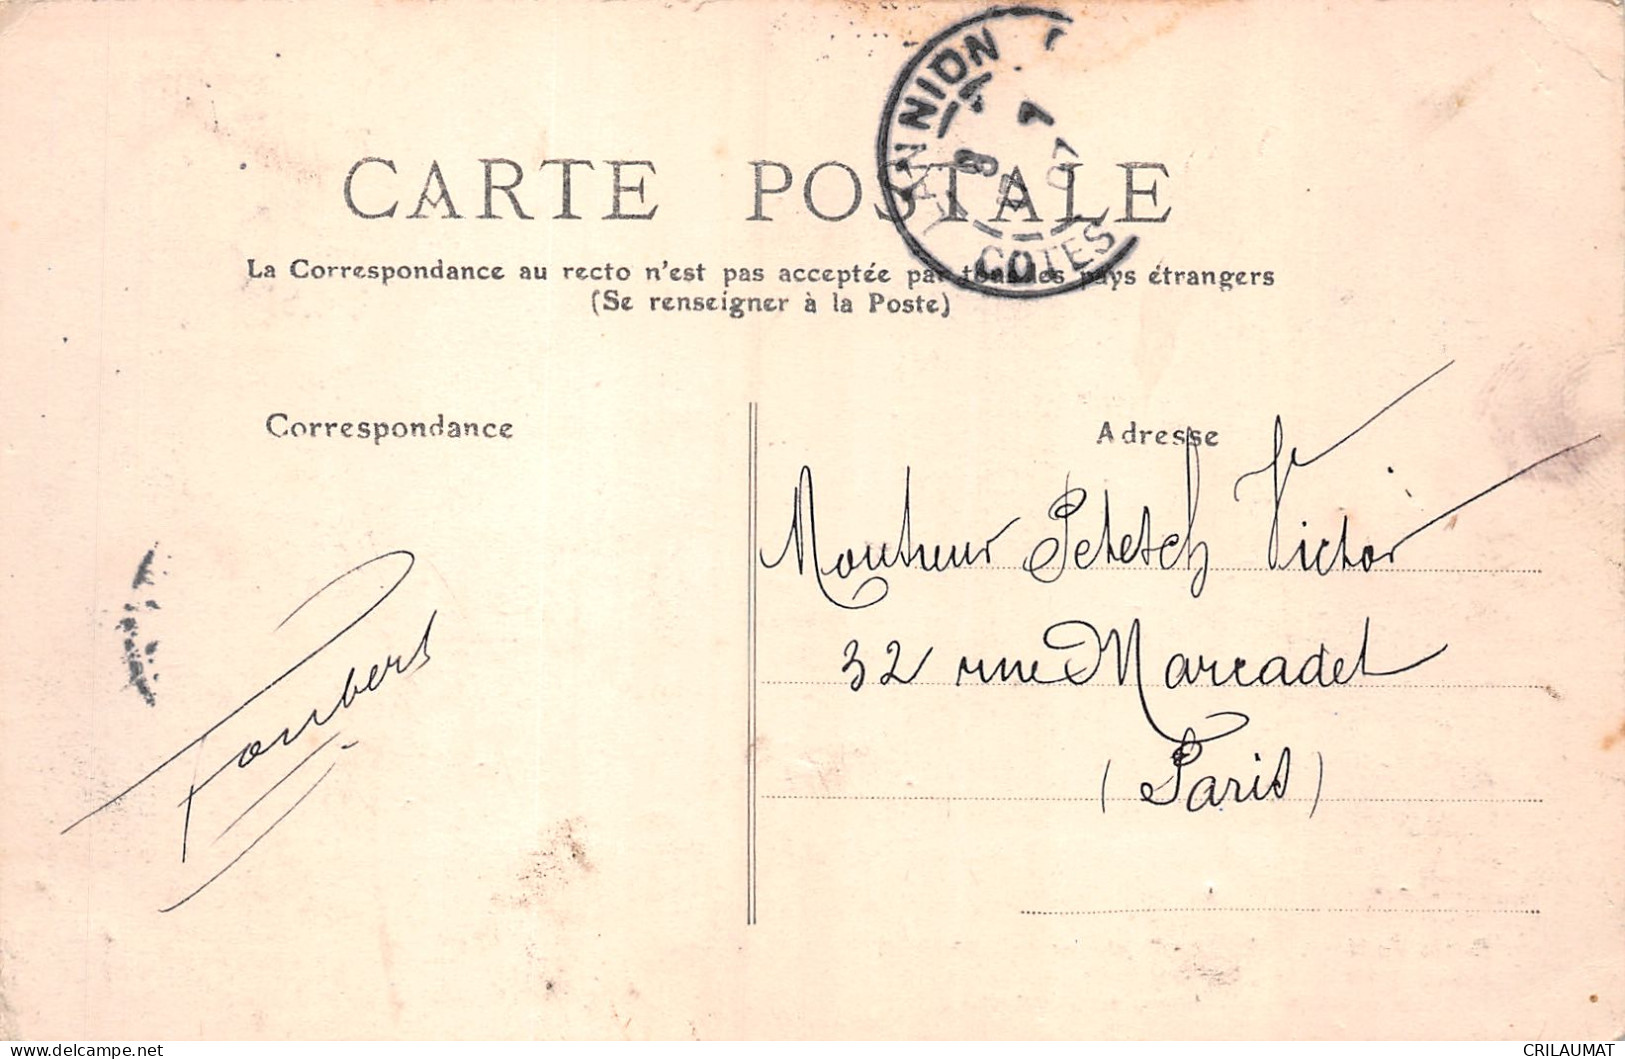 CARTE POSTALE
LANNION
8
07
COTES
La Correspondance au recto n'est pas acceptée par tous les pays étrangers
(Se renseigner à la Poste)
Correspondance
Adresse
Monsieur Petetch Victor
32 rue Marcadet
(Paris)
CRILAUMAT